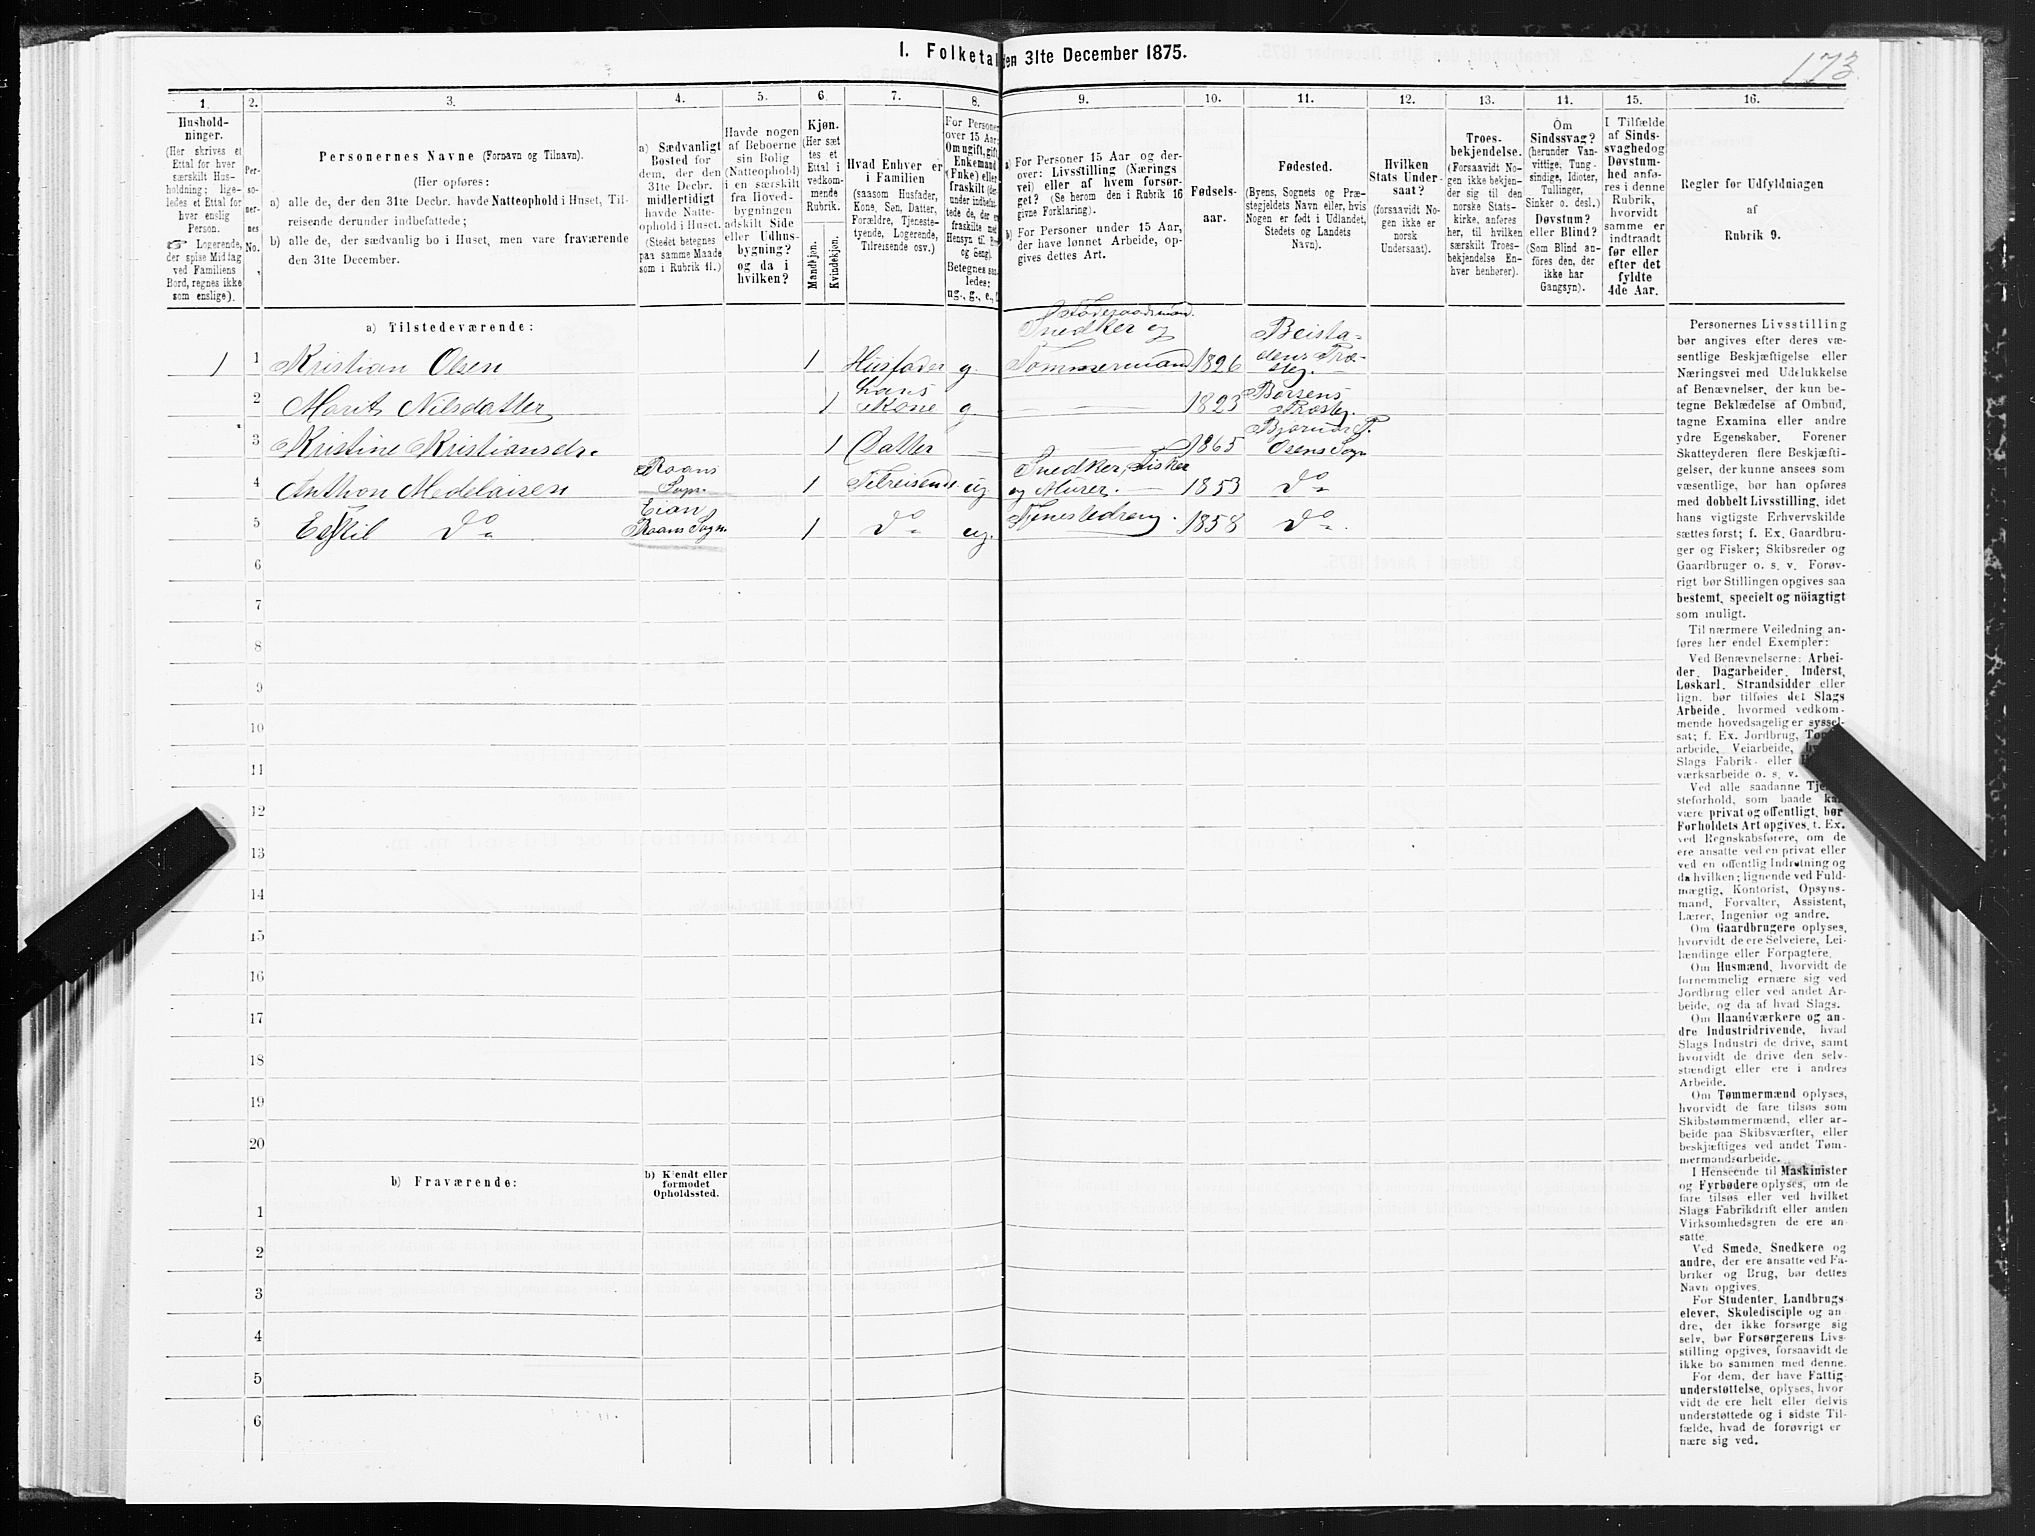 173
1. Folketal den 31te December 1875.
1. 2. 3. 4. 5. 6. 7. 8. 9. 10. 11. 12. 13. 14. 15. 16.
Hushold-
ninger.
(Her skrives et
Ettal for hver
særskilt Hus-
holdning; lige-
ledes et Ettal for
hver enslig
Person.
☞ Logerende,
der spise Middag
ved Familiens
Bord, regnes ikke
som enslige).
Per-
so-
ner-
nes
No.
Personernes Navne (Fornavn og Tilnavn).
(Her opføres:
a) alle de, der den 31te Decbr. havde Natteophold i Huset, Til-
reisende derunder indbefattede;
b) alle de, der sædvanlig bo i Huset, men vare fraværende
den 31te December.
a) Sædvanligt
Bosted for
dem, der den
31te Decbr.
midlertidigt
havde Natte-
ophold i Huset.
(Stedet betegnes
paa samme Maade
som i Rubrik 11.)
Havde nogen
af Beboerne
sin Bolig
(Natteophold)
i en særskilt
fra Hoved-
bygningen
adskilt Side
eller Udhus-
bygning?
og da i
hvilken?
Kjøn.
(Her sæt
tes et
Ettal i
vedkom-
mende
Rubrik.
Mandkjøn.
Kvindekjøn.
Hvad Enhver er
i Familien
(saasom Husfader,
Kone, Søn, Datter,
Forældre, Tjeneste-
tyende, Logerende,
Tilreisende osv.)
For Personer
over 15 Aar:
Om ugift, gift,
Enkemand
(Fnke) eller
fraskilt (der-
under indbefat-
tede de, der er
fraskilte med
Hensyn til B
og Seng).
Betegnes saa-
ledes:
ug., g., e.,
a) For Personer 15 Aar og der-
over: Livsstilling (Nærings
vei) eller af hvem forsør-
get? (Se herom den i Rubrik 16
givne Forklaring).
b) For Personer under 15 Aar,
der have lønnet Arbeide, op-
gives dettes Art.
Fødsels-
aar.
Fødested.
(Byens, Sognets og Præ-
stegjeldets Navn eller, hvis
Nogen er født i Udlandet,
Stedets og Landets
Navn).
Hvilken
Stats Under
saat?
(forsaavidt No-
gen ikke er
norsk
Undersaat).
Troes-
bekjendelse.
(Forsaavidt No-
gen ikke bekjen-
der sig til den
norske Stats-
kirke, anføres
her, til hvilken
særskilt Troes-
bekjendelse En-
hver henhører).
Om
Sindssvag?
(herunder Van-
vittige, Tung-
sindige, Idioter,
Tullinger,
Sinker o. desl.)
Døvstum?
eller Blind?
(Som Blind an-
føres den, der
ikke har
Gangsyn).
I Tilfælde
af Sinds-
svaghedog
Døvstum-
hed anfø-
res i denne
Rubrik,
hvorvidt
samme er
indtraadt
før eller
efter det
fyldte
4de Aar.
Regler for Udfyldningen
af
Rubrik 9.
a) Tilstedeværende:
1 1 Kristian Olsen 1 Husfader g. Snedker og Tømmermand 1826 Beistadens Præsteg.
2 Marit Nilsdatter 1 hans Kone g — — 1823 Børsens Præsteg.
3 Kristine Kristiansdr. 1 Datter — — 1865 Bjørnør P. Osens Sogn
4 Anthon Medelaisen Roans Sogn 1 Tilreisende ug Snedker, Fisker og Murer. — 1853 Do
5 Eskil Do Roans Sogn. 1 Do ug. 1858 Do
6
7
8
9
10
11
12
13
14
15
16
17
18
19
20
b) Fraværende:
b) Kjendt eller
formodet
Opholdssted.
1
2
3
4
5
6
Personernes Livsstilling
bør angives efter deres væ-
sentlige Beskjæftigelse eller
Næringsvei med Udelukkelse
af Benævnelser, der kun be-
tegne Beklædelse af Ombud,
tagne Examina eller andre
ydre Egenskaber. Forener
Skatteyderen flere Beskjæfti-
gelser, der kunne ansees som
væsentlige, bør han opføres
med dobbelt Livsstilling, idet
hans vigtigste Erhvervskilde
sættes først; f. Ex. Gaardbru-
ger og Fisker; Skibsreder og
Gaardbruger o. s. v. Forøv-
rigt bør Stillingen opgives saa
bestemt, specielt og nöiagtigt
som muligt.
Til nærmere Veiledning an-
føres her endel Exempler:
Ved Benævnelserne: Arbei-
der, Dagarbeider, Inderst,
Løskarl, Strandsidder eller
lign. bør tilføies det Slags
Arbeide, hvormed vedkom-
mende hovedsagelig er syssel-
sat; f. Ex. Jordbrug,
arbeide, Veiarbeide,
Slags Fabrik- eller
værksarbeide o. s. v.
Ved alle saadanne Tje
steforhold, som baade
være privat og offentligt, bør
Forholdets Art opgives, f. Ex.
ved Regnskabsførere, om de
ere ansatte ved en privat eller
ved en offentlig Indretning og
da hvilken; lignende ved Fuld-
mægtig, Kontorist, Opsyns-
mand, Forvalter, Assistent,
Lærer, Ingeniør og andre.
Om Gaardbrugere oplyses,
hvorvidt de ere Selveiere, Lei-
lændinge eller Forpagtere.
Om Husmænd, hvorvidt de
fornemmelig ernære sig ved
Jordbrug eller ved andet Ar-
beide, og da af hvad Slags.
Om Haandværkere og an-
dre Industridrivende, hvad
Slags Industri de drive, samt
hvorvidt de drive den selv-
stændigt eller ere i andres
Arbeide.
Om Tømmermænd oplyses,
hvorvidt de fare tilsøs som
Skibstømmermænd, eller ar-
beide paa Skibsværfter, eller
beskjæftiges ved andet Tøm-
mermandsarbeide.
I Henseende til Maskinister
og Fyrbødere oplyses, om de
fare tilsøs eller ved hvilket
Slags Fabrikdrift eller anden
Virksomhedsgren de ere an-
satte.
Ved Smede, Snedkere og
andre, der ere ansatte ved Fa-
briker og Brug, bør dettes
Navn opgives.
For Studenter, Landbrugs-
elever, Skoledisciple og an-
dre, der ikke forsørge sig
selv, bør Forsørgerens Livs-
stilling opgives, forsaavidt de
ikke bo sammen med denne.
For dem, der have Fattig-
understøttelse, oplyses, hvor-
vidt de ere helt eller delvis
understøttede og i sidste Til-
fælde, hvad de forøvrigt er-
nære sig ved.